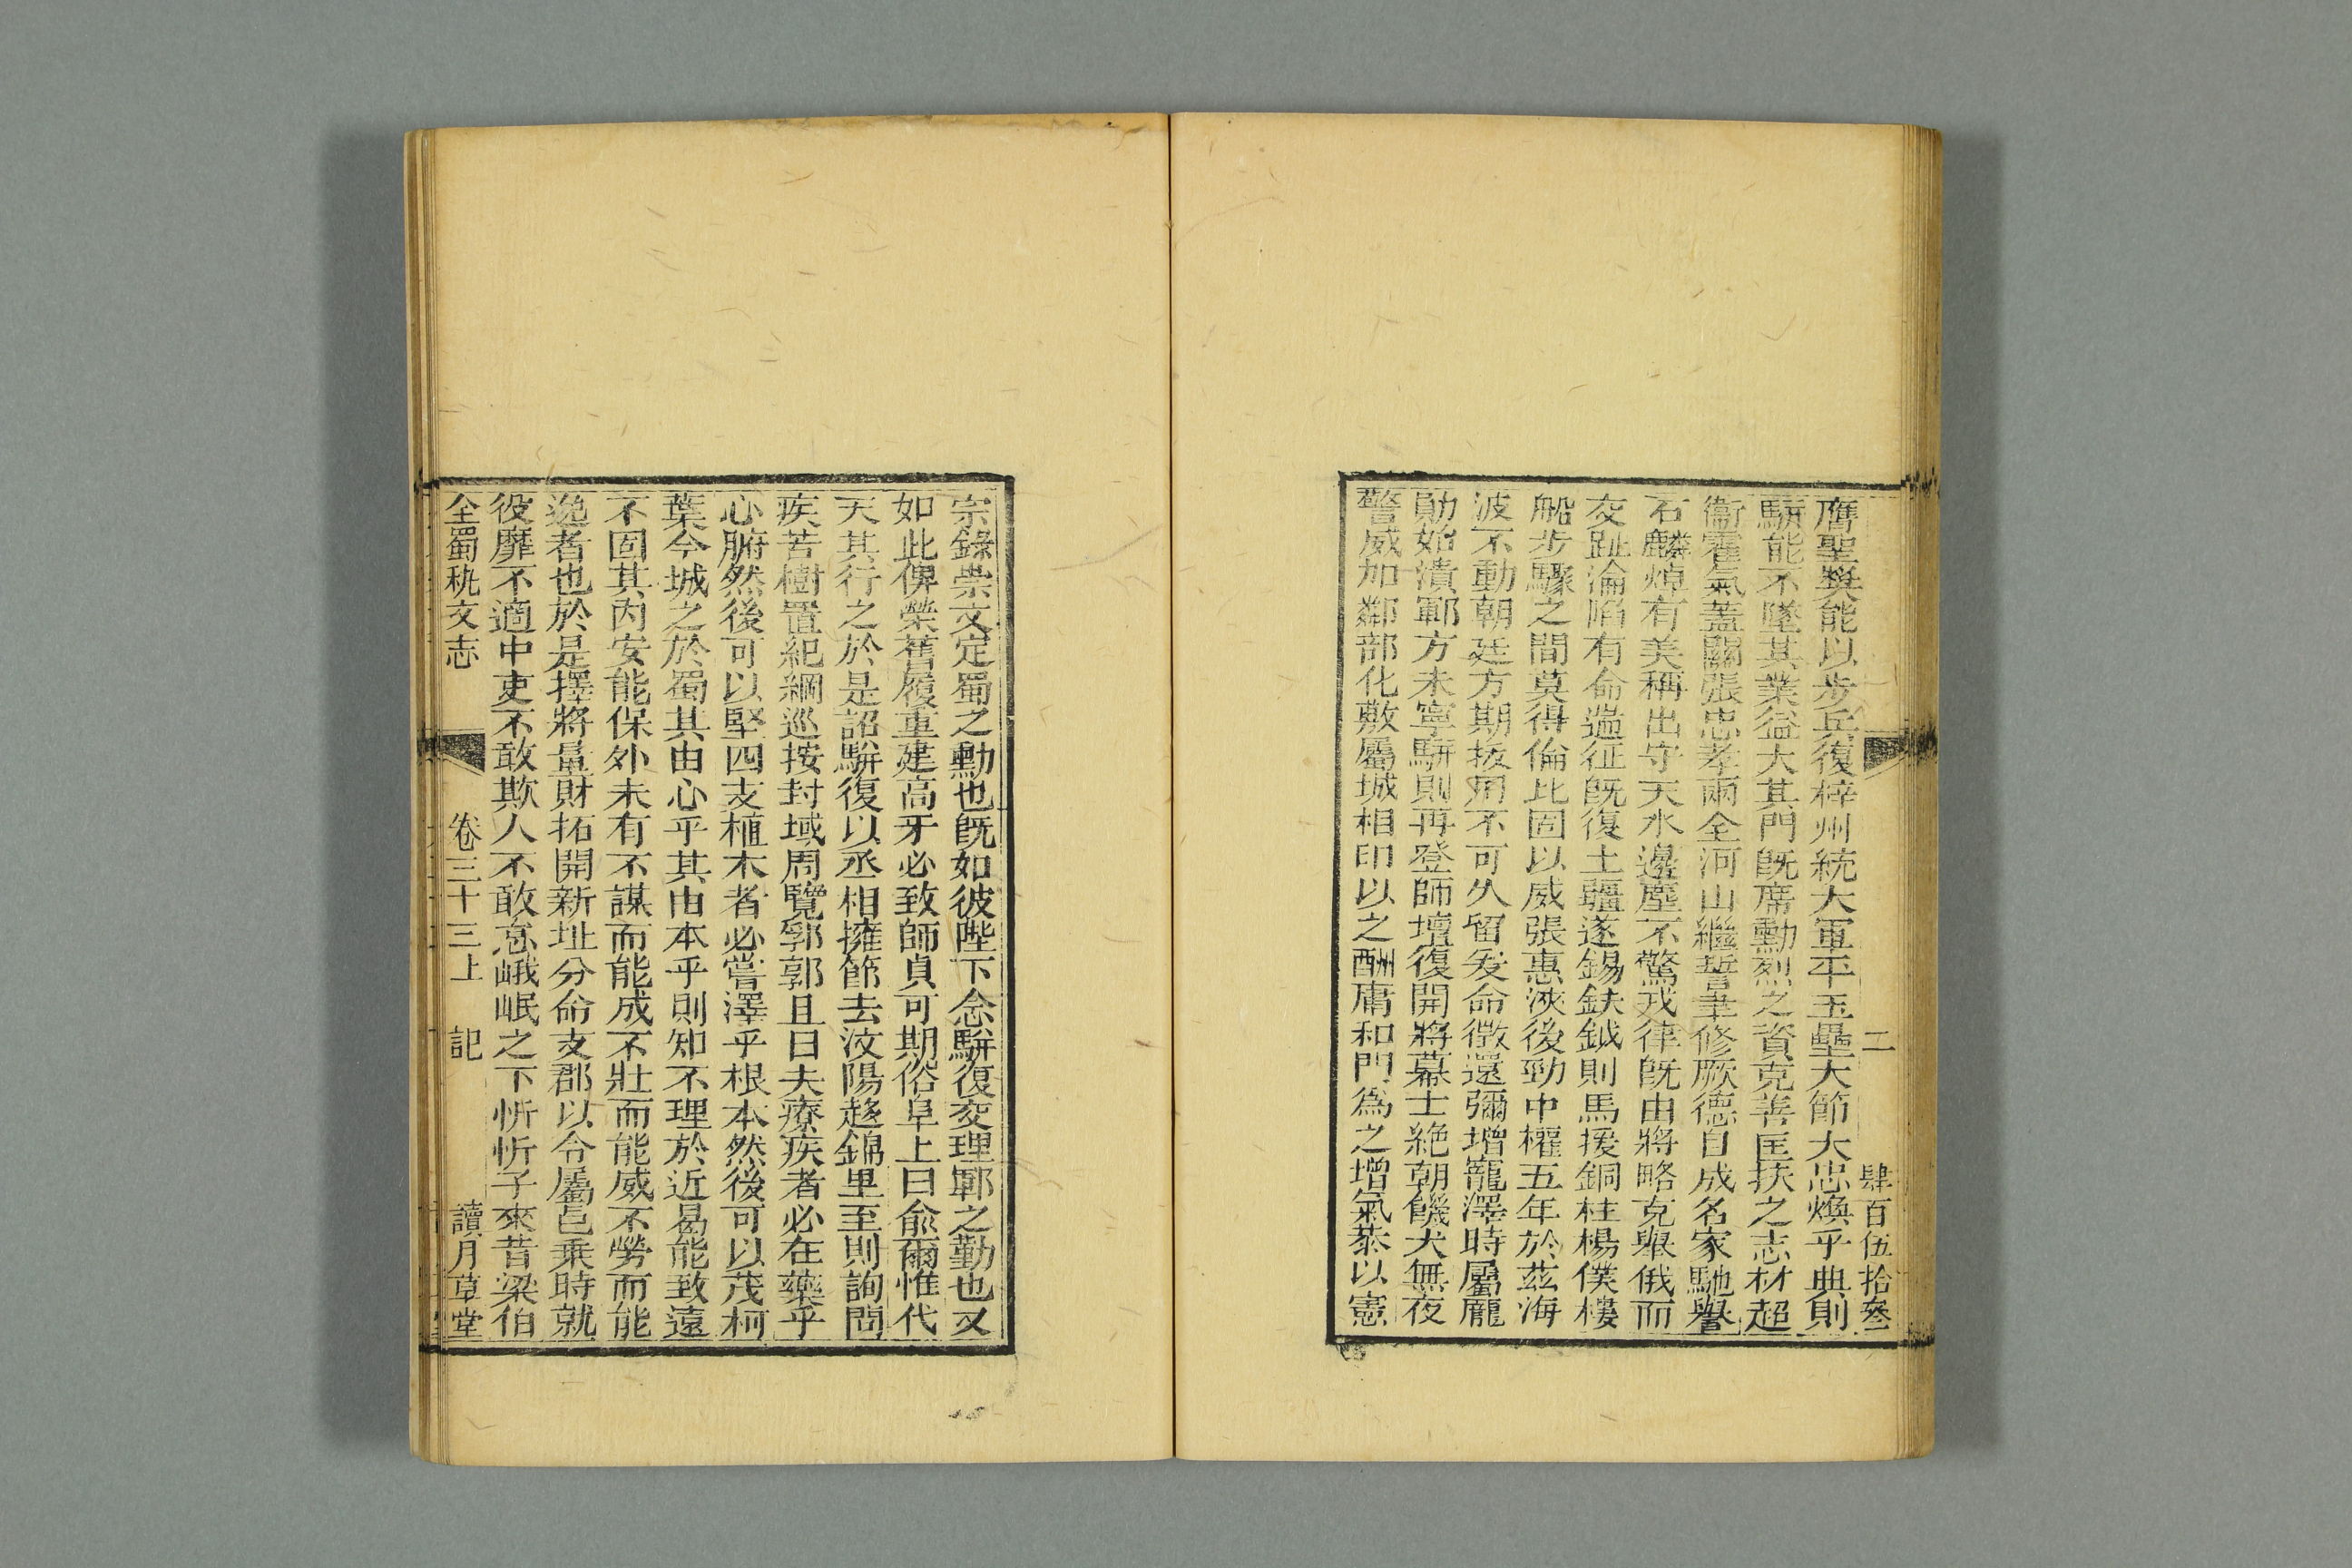 二　肆百伍拾叄
膺聖獎能以步兵復梓州統大軍平玉壘大節大忠煥乎典則
駢能不墜其業益大其門旣席勳烈之資克善匡扶之志材超
衞霍氣蓋關張忠孝兩全河山繼誓聿修厥德自成名家馳譽
石麟焯有美稱出守天水邊塵不驚戎律旣由將略克舉俄而
交趾淪陷有命遄征旣復土疆遂錫鈇鉞則馬援銅柱楊僕樓
船步驟之間莫得倫比固以威張惠浹後勁中權五年於茲海
波不動朝廷方期拔用不可久留爰命徵還彌增寵澤時屬龐
勛始潰鄆方未寧駢則再登師壇復開將幕士絶朝饑犬無夜
警威加鄰部化敷屬城相印以之酬庸和門為之增氣恭以憲
宗錄崇文定蜀之勳也旣如彼陛下念駢復交理鄆之勤也又
如此俾榮舊履重建高牙必致師貞可期俗阜上曰俞爾惟代
天其行之於是詔駢復以丞相擁節去汶陽趍錦里至則詢問
疾苦樹置紀綱巡按封域周覽郛郭且曰夫療疾者必在藥乎
心腑然後可以堅四支植木者必嘗澤乎根本然後可以茂柯
葉今城之於蜀其由心乎其由本乎則知不理於近曷能致遠
不固其內安能保外未有不謀而能成不壯而能威不勞而能
逸者也於是擇將量財拓開新址分命支郡以令屬邑乘時就
役靡不適中吏不敢欺人不敢怠峨岷之下忻忻子來昔梁伯
全蜀秇文志　卷三十三上　記　讀月草堂